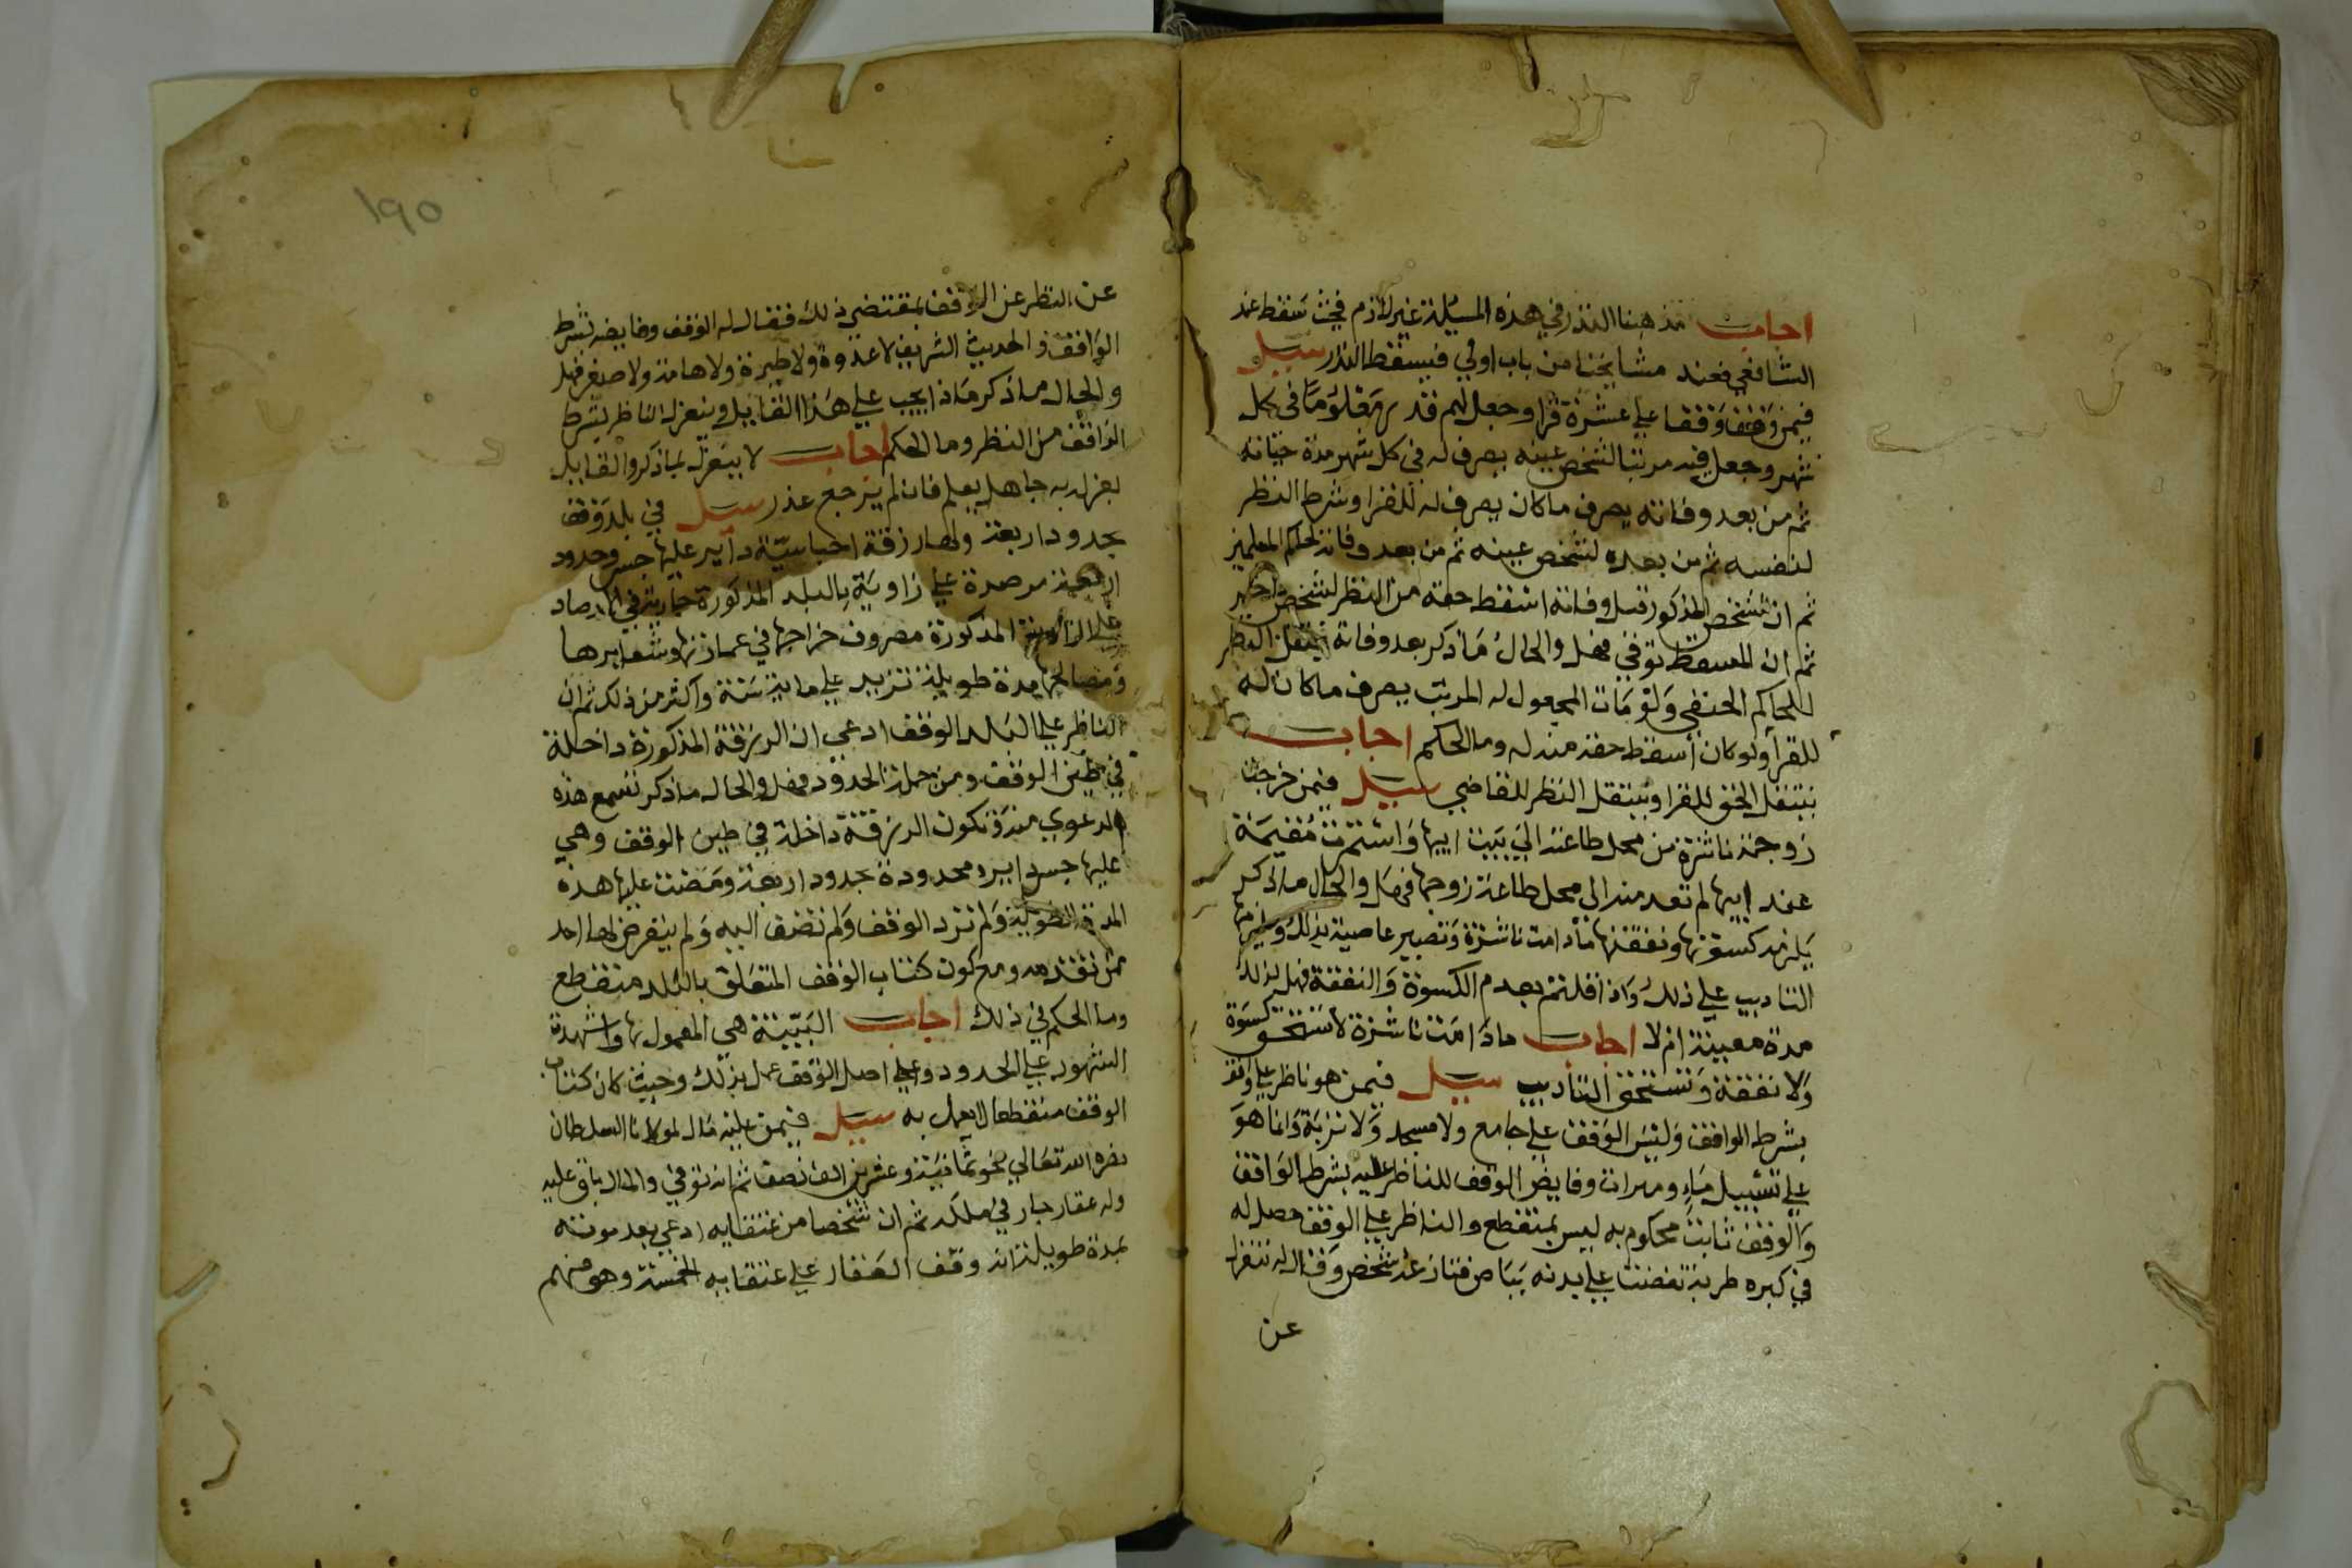 اجاب مذهبنا النذر في هذه المسيلة غير لازم فحيث سقط عند
الشافعي فعند مشايخنا من باب اولي فيسقط النذر سيل
فيمن وقف وقفا علي عشرة قرا وجعل لهم قدر معلوما في كل
شهر وجعل فيه مرتبا لشخص عينه يصرف له في كل شهر مدة حياته
ثم من بعد وفاته يصرف ما كان يصرف له للقرا وشرط النظر
لنفسه ثم من بعده لشخص عينه ثم من بعد وفاته لحاكم المسلمين
ثم ان الشخص المذكور قبل وفاته اسقط حقه من النظر لشخص اخر
ثم ان المسقط توفي فهل والحال ما ذكر بعد وفاته ينتقل النظر
للحاكم الحنفي ولو مات المجعول له المرتب يصرف ما كان له
للقرا ولو كان اسقط حقه منه له وما الحكم اجاب
ينتقل الحق للقرا وينتقل النظر للقاضي سيل فيمن خرجت
زوجته ناشزة من محل طاعته الي بيت ابيها واستمرت مقيمة
عند ابيها لم تعد منه الى محل طاعة زوجها فهل والحال ما ذكر
يلزمه كسوتها ونفقتها ما دامت ناشزة وتصير عاصية بذلك
التاديب علي ذلك واذا قلتم بعدم الكسوة والنفقة فهل لذلك
مدة معينة ام لا اجاب ما دامت ناشزة لا تستحق كسوة
ولا نفقة وتستحق التاديب سيل فيمن هو ناظر علي وقف
بشرط الواقف وليس الوقف علي جامع ولا مسجد ولا تربة وانما هو
علي تسبيل ماء ومبرات وفايض الوقف للناظر عليه بشرط الواقف
والوقف ثابت محكوم به ليس بمنقطع والناظر علي الوقف حصل له
في كبره طربة نفضت علي بدنه بياض فتنازعه شخص وقال له تنعزل
عن
١٩٥
عن النظر عن الوقف بمقتضي ذلك فقال له الوقف وفايضه بشرط
الواقف والحديث الشريف لا عدوة ولا طيرة ولا هامة ولا صفر فهل
والحال ما ذكر ماذا يجب علي هذا القايل وينعزل الناظر بشرط
الواقف من النظر وما الحكم اجاب لا ينعزل بما ذكر والقايل
بعزله به جاهل يعلم فان لم يرجع عذر سيل في بلد وقف
بحدود اربعة ولها رزقة احباسية داير عليها جسر وحدود
اربعة مرصدة علي زاوية بالبلد المذكورة جارية في ارصاد
علي الزاوية المذكورة مصروف خراجها في عمارتها وشعايرها
ومصالحها مدة طويلة تزيد علي ماية سنة واكثر من ذلك ثم ان
الناظر علي البلد الوقف ادعي ان الرزقة المذكورة داخلة
في طين الوقف ومن جملة الحدود فهل والحال ما ذكر تسمع هذه
الدعوي منه وتكون الرزقة داخلة في طين الوقف وهي
عليها جسر دايره محدودة بحدود اربعة ومضت عليها هذه
المدة الطويلة ولم ترد الوقف ولم تضف اليه ولم يتعرض لها احد
ممن تقدمه ومع كون كتاب الوقف المتعلق بالبلد منقطع
وما الحكم في ذلك اجاب البينة هي المعمول بها واشهدة
الشهود علي الحدود وعلي اصل الوقف عمل بذلك وحيث كان كتاب
الوقف منقطعا لا يعمل به سيل فيمن عليه مال لمولانا السلطان
نصره الله تعالي نحو ثمانية وعشرين الف نصف ثم انه توفي والمال باق عليه
وله عقار جار في ملكه ثم ان شخصا من عتقايه ادعي بعد موته
بمدة طويلة انه وقف العقار علي عتقايه الخمسة وهو منهم